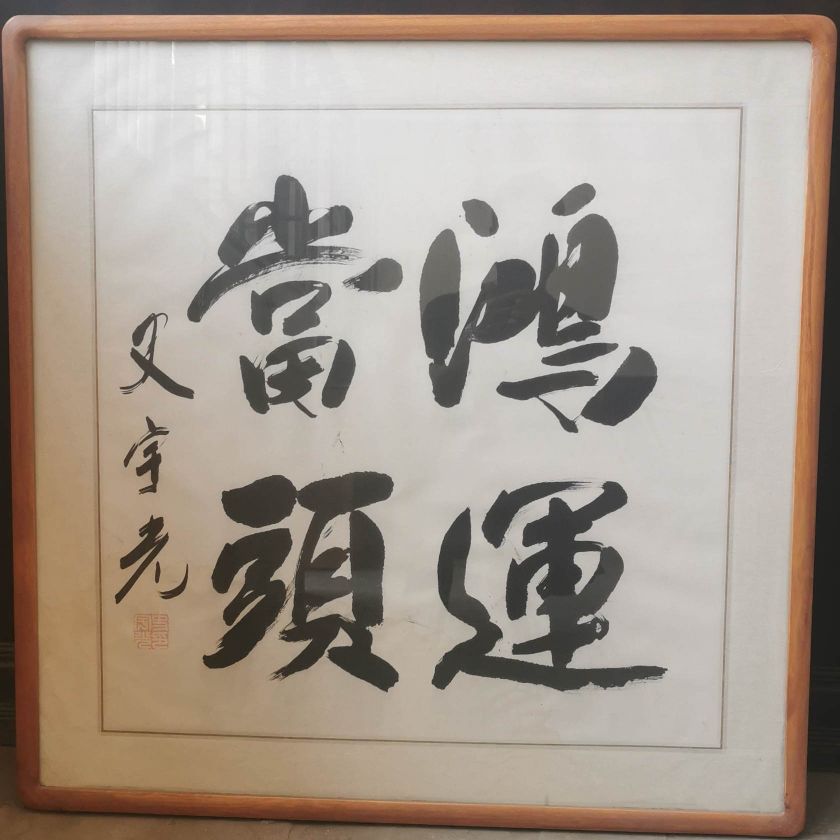 鴻運
當頭
宇光